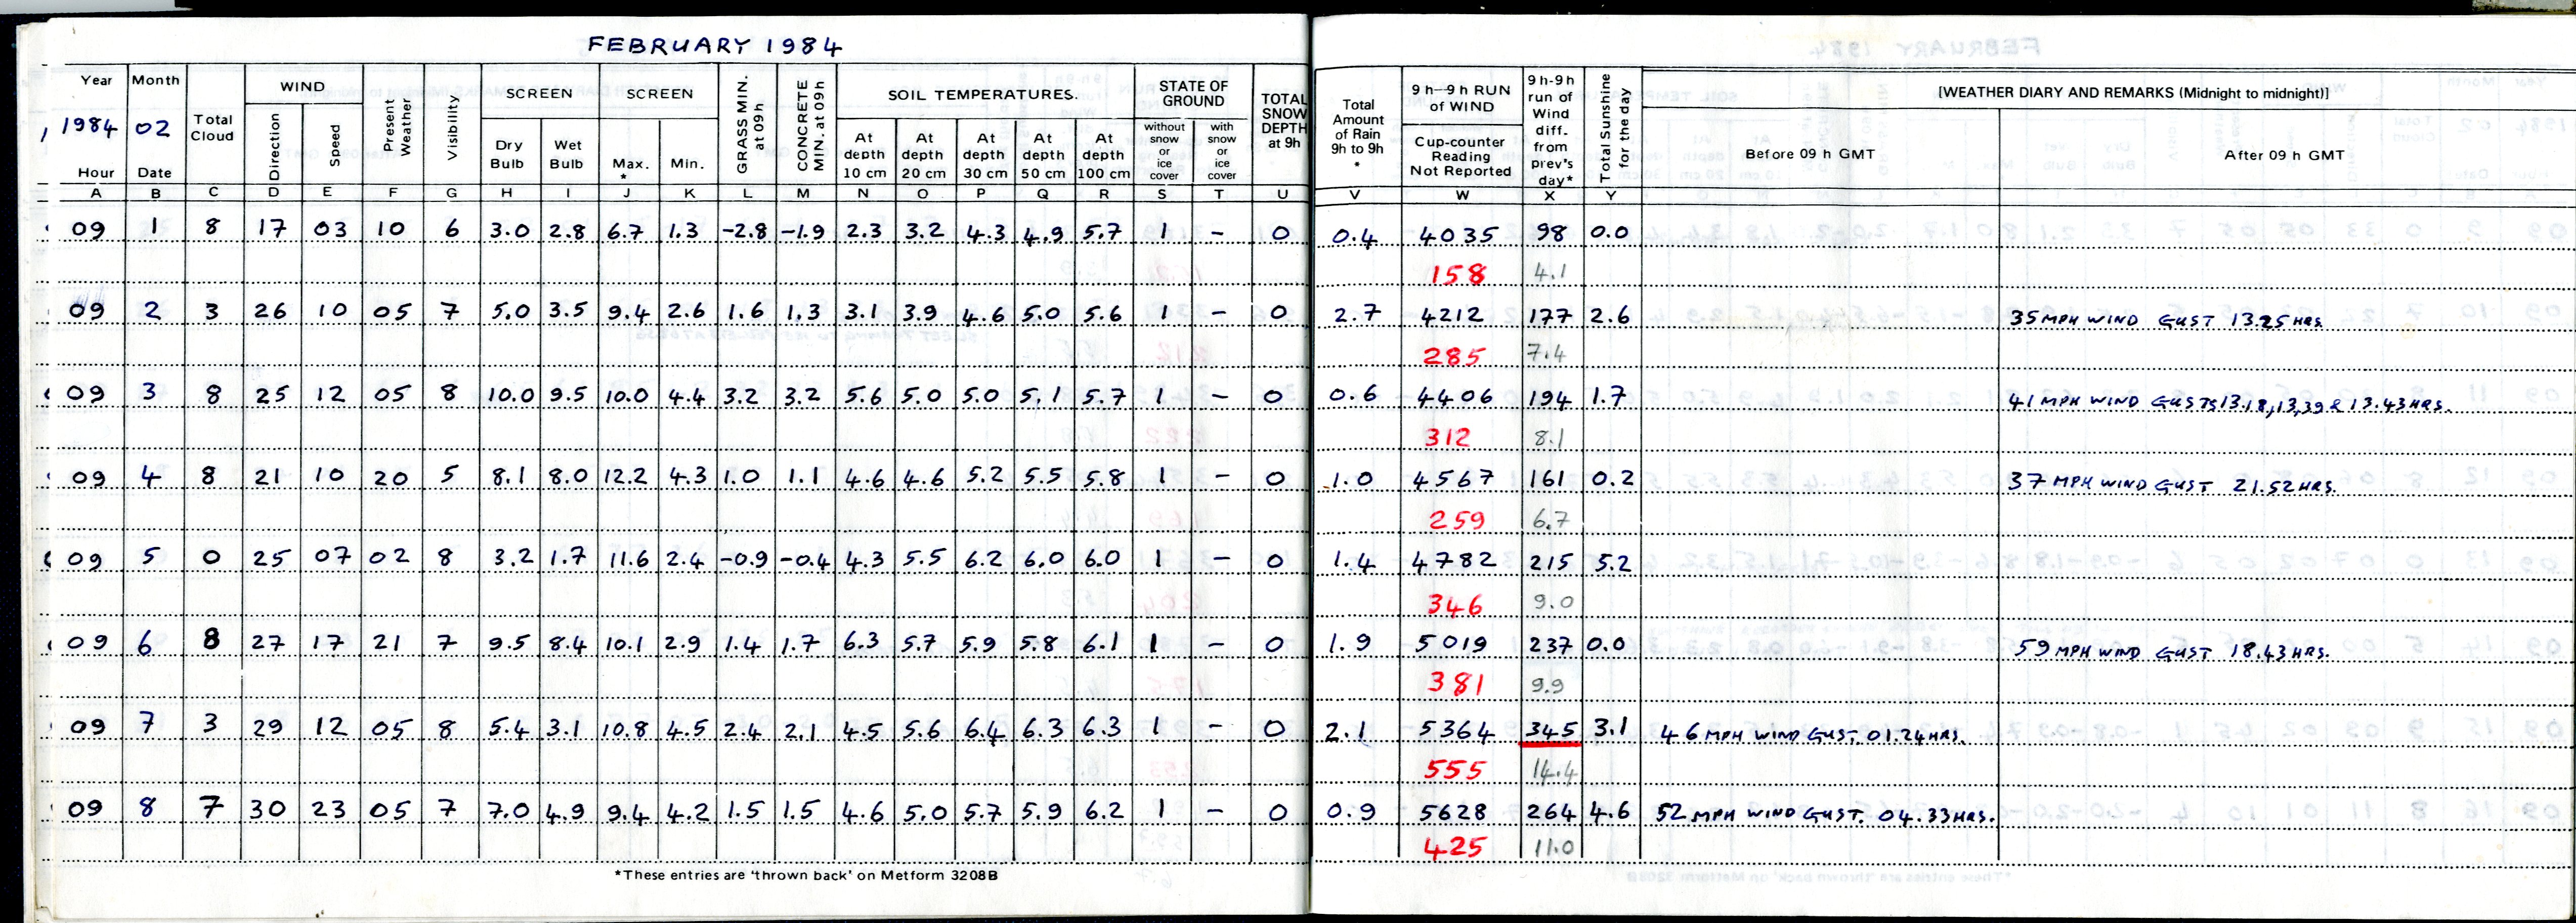 FEBRUARY 1984
Year Month Total Cloud WIND Present Weather Visibility SCREEN SCREEN GRASS MIN. at 09h CONCRETE MIN. at 09h SOIL TEMPERATURES. STATE OF GROUND TOTAL SNOW DEPTH at 9h Total Amount of Rain 9h to 9h * 9 h–9 h RUN of WIND 9 h-9h run of Wind diff. from prev's day* Total Sunshine for the day [WEATHER DIARY AND REMARKS (Midnight to midnight)]
1984 02 Direction Speed Dry Bulb Wet Bulb Max. * Min. At depth 10 cm At depth 20 cm At depth 30 cm At depth 50 cm At depth 100 cm without snow or ice cover with snow or ice cover Cup-counter Reading Not Reported Before 09 h GMT After 09 h GMT
Hour Date
A B C D E F G H I J K L M N O P Q R S T U V W X Y
09 1 8 17 03 10 6 3.0 2.8 6.7 1.3 -2.8 -1.9 2.3 3.2 4.3 4.9 5.7 1 - 0 0.4 4035 98 0.0
158 4.1
09 2 3 26 10 05 7 5.0 3.5 9.4 2.6 1.6 1.3 3.1 3.9 4.6 5.0 5.6 1 - 0 2.7 4212 177 2.6 35 MPH WIND GUST 13.25 HRS.
285 7.4
09 3 8 25 12 05 8 10.0 9.5 10.0 4.4 3.2 3.2 5.6 5.0 5.0 5.1 5.7 1 - 0 0.6 4406 194 1.7 41 MPH WIND GUSTS 13.18, 13,39 & 13.43 HRS.
312 8.1
09 4 8 21 10 20 5 8.1 8.0 12.2 4.3 1.0 1.1 4.6 4.6 5.2 5.5 5.8 1 - 0 1.0 4567 161 0.2 37 MPH WIND GUST 21.52 HRS.
259 6.7
09 5 0 25 07 02 8 3.2 1.7 11.6 2.4 -0.9 -0.4 4.3 5.5 6.2 6.0 6.0 1 - 0 1.4 4782 215 5.2
346 9.0
09 6 8 27 17 21 7 9.5 8.4 10.1 2.9 1.4 1.7 6.3 5.7 5.9 5.8 6.1 1 - 0 1.9 5019 237 0.0 59 MPH WIND GUST 18.43 HRS.
381 9.9
09 7 3 29 12 05 8 5.4 3.1 10.8 4.5 2.4 2.1 4.5 5.6 6.4 6.3 6.3 1 - 0 2.1 5364 345 3.1 46 MPH WIND GUST. 01.24 HRS.
555 14.4
09 8 7 30 23 05 7 7.0 4.9 9.4 4.2 1.5 1.5 4.6 5.0 5.7 5.9 6.2 1 - 0 0.9 5628 264 4.6 52 MPH WIND GUST. 04.33 HRS.
425 11.0
*These entries are 'thrown back' on Metform 3208B